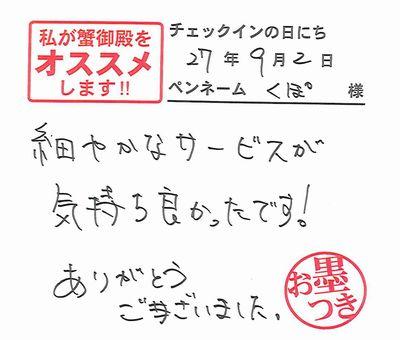 私が蟹御殿を
オススメ
します!!
チェックインの日にち
27年9月2日
ペンネーム くぼ 様
細やかなサービスが
気持ち良かったです!
ありがとう
ございました。
お墨
つき